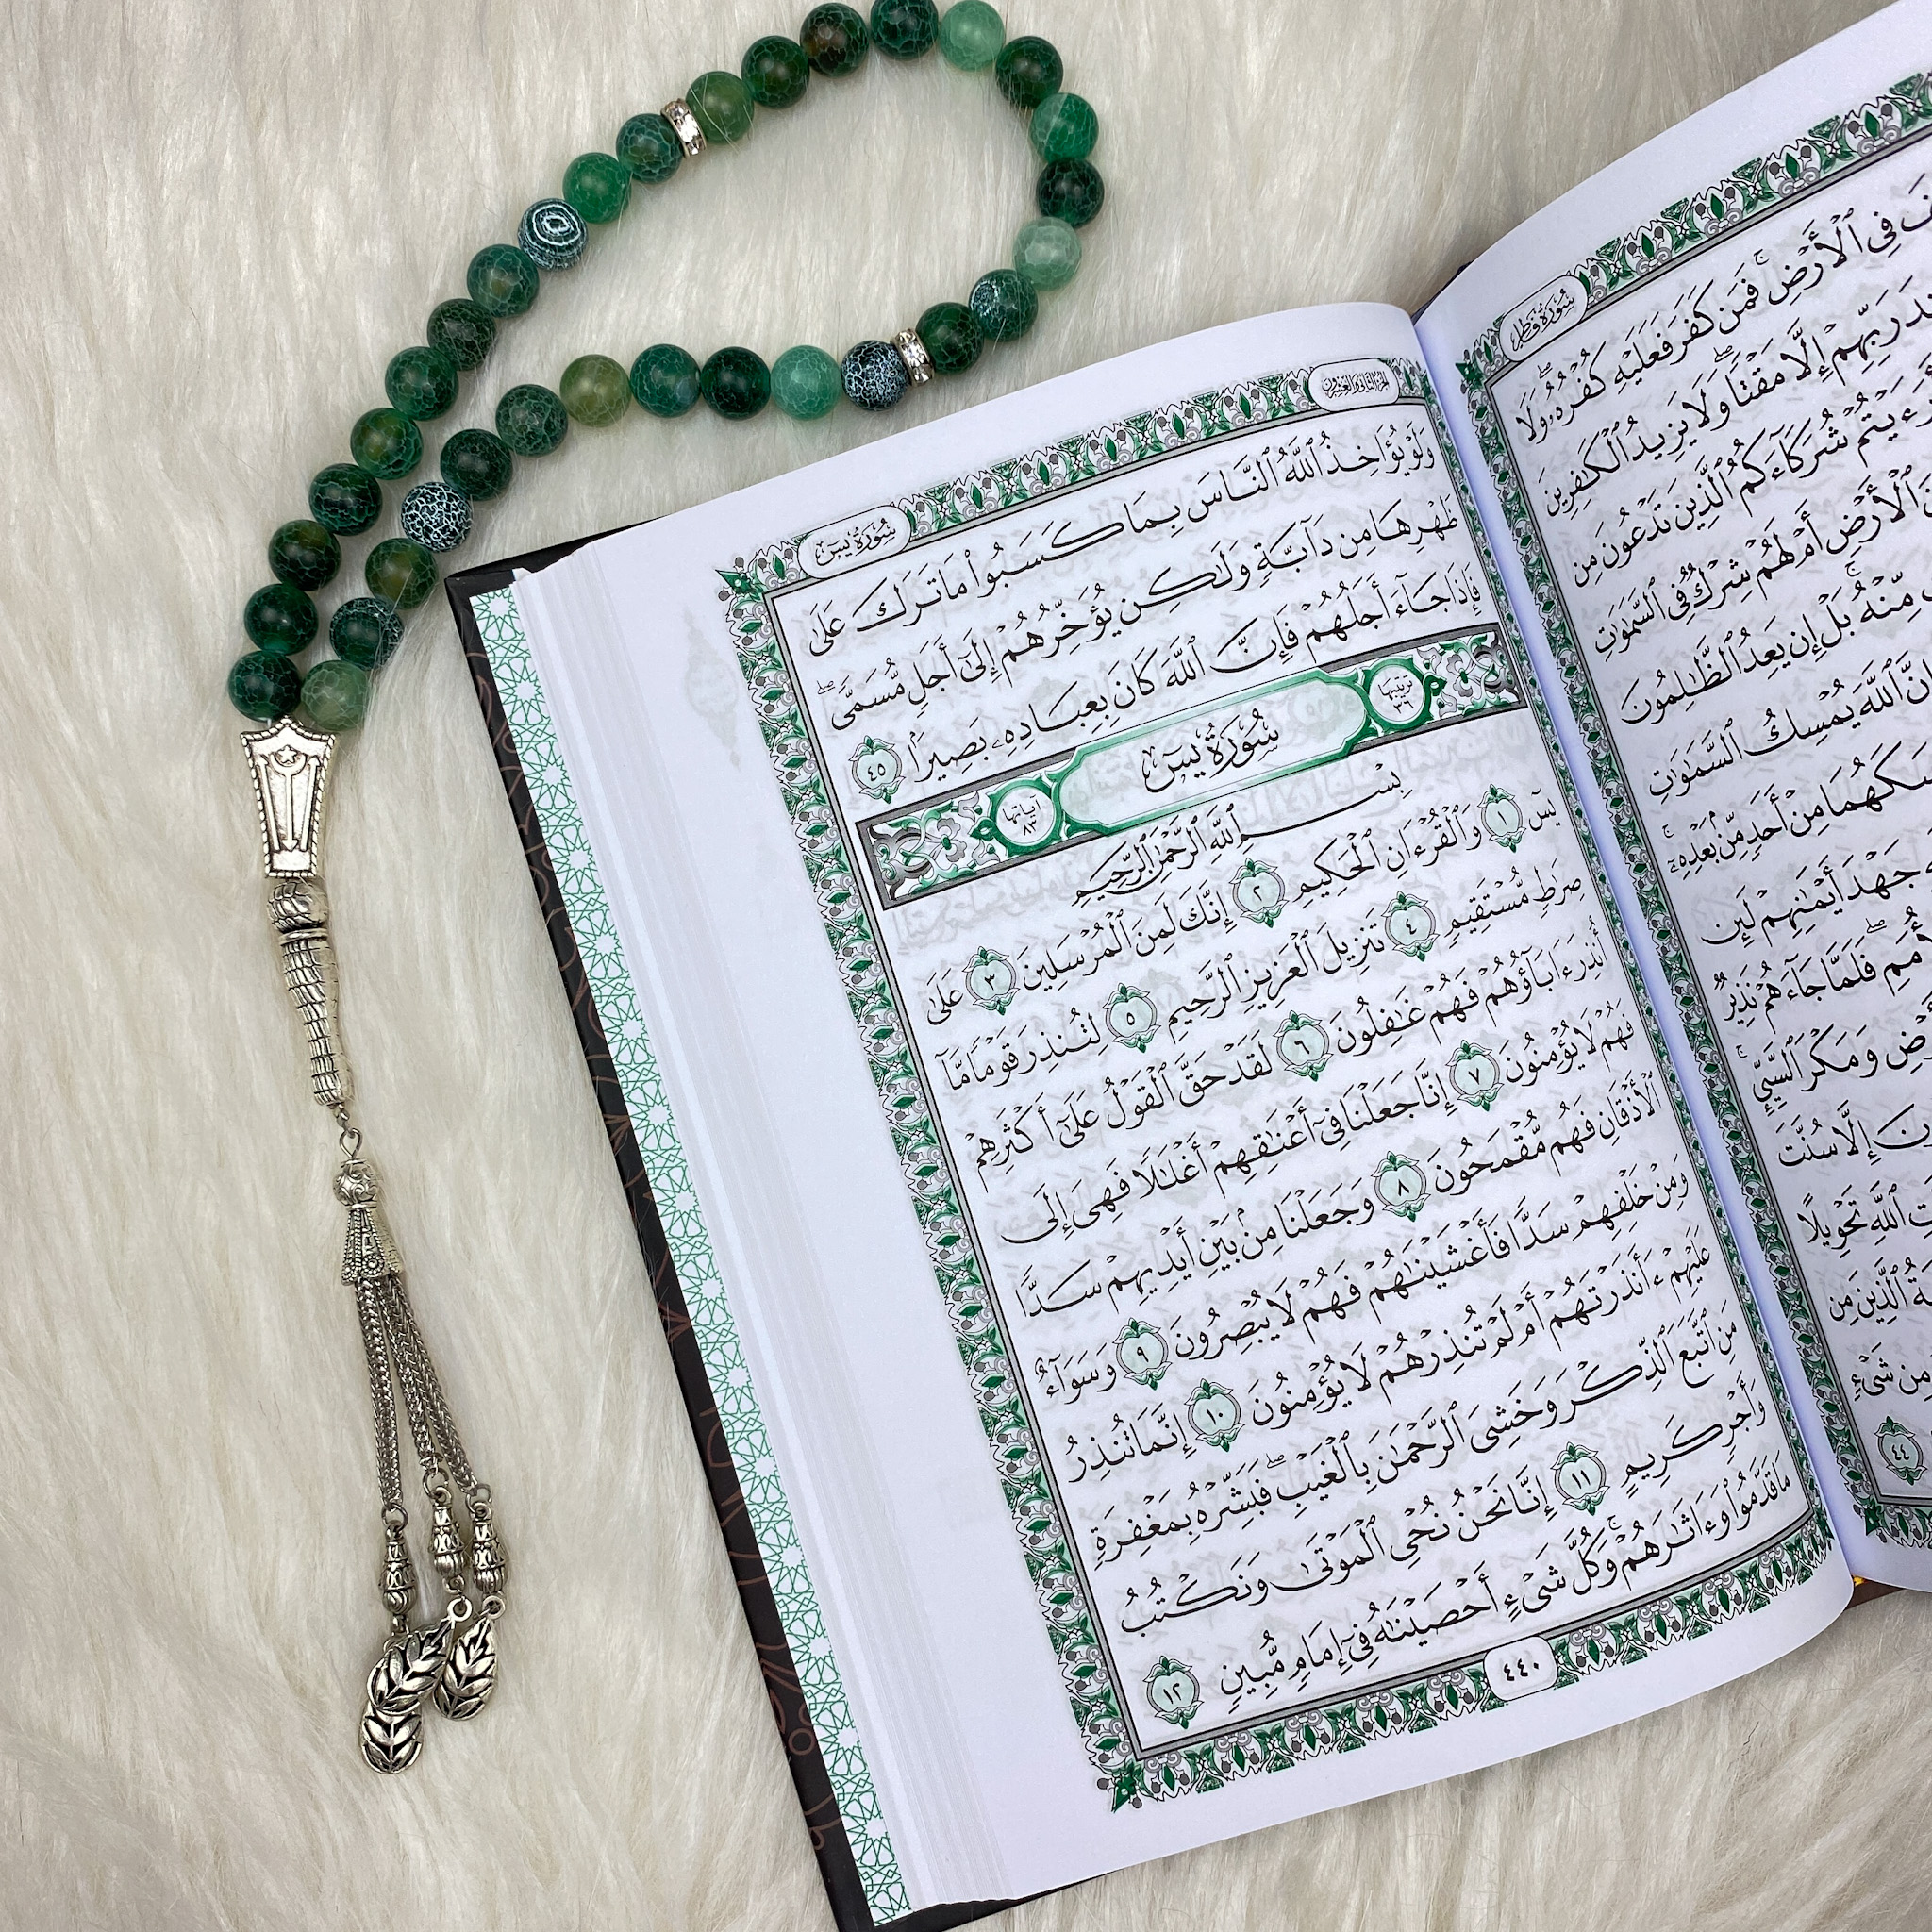 سُورَةُ فَاطِرٍ
فِى ٱلْأَرْضِ ۚ فَمَن كَفَرَ فَعَلَيْهِ كُفْرُهُۥ ۖ وَلَا
رَبِّهِمْ إِلَّا مَقْتًا ۖ وَلَا يَزِيدُ ٱلْكَـٰفِرِينَ
شُرَكَآءَكُمُ ٱلَّذِينَ تَدْعُونَ مِن
ٱلْأَرْضِ أَمْ لَهُمْ شِرْكٌ فِى ٱلسَّمَـٰوَٰتِ
مِّنْهُ ۚ بَلْ إِن يَعِدُ ٱلظَّـٰلِمُونَ
ٱللَّهَ يُمْسِكُ ٱلسَّمَـٰوَٰتِ
مِنْ أَحَدٍ مِّنۢ بَعْدِهِۦٓ ۚ
جَهْدَ أَيْمَـٰنِهِمْ لَئِن
فَلَمَّا جَآءَهُمْ نَذِيرٌ
وَمَكْرَ ٱلسَّيِّئِ ۚ
إِلَّا سُنَّتَ
ٱللَّهِ تَحْوِيلًا
ٱلَّذِينَ مِن
مِن شَىْءٍ
٤٤
الجزء الثاني والعشرون سُورَةُ يسٓ
وَلَوْ يُؤَاخِذُ ٱللَّهُ ٱلنَّاسَ بِمَا كَسَبُوا۟ مَا تَرَكَ عَلَىٰ
ظَهْرِهَا مِن دَآبَّةٍ وَلَـٰكِن يُؤَخِّرُهُمْ إِلَىٰٓ أَجَلٍ مُّسَمًّى ۖ
فَإِذَا جَآءَ أَجَلُهُمْ فَإِنَّ ٱللَّهَ كَانَ بِعِبَادِهِۦ بَصِيرًۢا ٤٥
ترتيبها ٣٦ سُورَةُ يسٓ آياتها ٨٣
بِسْمِ ٱللَّهِ ٱلرَّحْمَـٰنِ ٱلرَّحِيمِ
يسٓ ١ وَٱلْقُرْءَانِ ٱلْحَكِيمِ ٢ إِنَّكَ لَمِنَ ٱلْمُرْسَلِينَ ٣ عَلَىٰ
صِرَٰطٍ مُّسْتَقِيمٍ ٤ تَنزِيلَ ٱلْعَزِيزِ ٱلرَّحِيمِ ٥ لِتُنذِرَ قَوْمًا مَّآ
أُنذِرَ ءَابَآؤُهُمْ فَهُمْ غَـٰفِلُونَ ٦ لَقَدْ حَقَّ ٱلْقَوْلُ عَلَىٰٓ أَكْثَرِهِمْ
فَهُمْ لَا يُؤْمِنُونَ ٧ إِنَّا جَعَلْنَا فِىٓ أَعْنَـٰقِهِمْ أَغْلَـٰلًا فَهِىَ إِلَى
ٱلْأَذْقَانِ فَهُم مُّقْمَحُونَ ٨ وَجَعَلْنَا مِنۢ بَيْنِ أَيْدِيهِمْ سَدًّا
وَمِنْ خَلْفِهِمْ سَدًّا فَأَغْشَيْنَـٰهُمْ فَهُمْ لَا يُبْصِرُونَ ٩ وَسَوَآءٌ
عَلَيْهِمْ ءَأَنذَرْتَهُمْ أَمْ لَمْ تُنذِرْهُمْ لَا يُؤْمِنُونَ ١٠ إِنَّمَا تُنذِرُ
مَنِ ٱتَّبَعَ ٱلذِّكْرَ وَخَشِىَ ٱلرَّحْمَـٰنَ بِٱلْغَيْبِ ۖ فَبَشِّرْهُ بِمَغْفِرَةٍ
وَأَجْرٍ كَرِيمٍ ١١ إِنَّا نَحْنُ نُحْىِ ٱلْمَوْتَىٰ وَنَكْتُبُ
مَا قَدَّمُوا۟ وَءَاثَـٰرَهُمْ ۚ وَكُلَّ شَىْءٍ أَحْصَيْنَـٰهُ فِىٓ إِمَامٍ مُّبِينٍ ١٢
٤٤٠